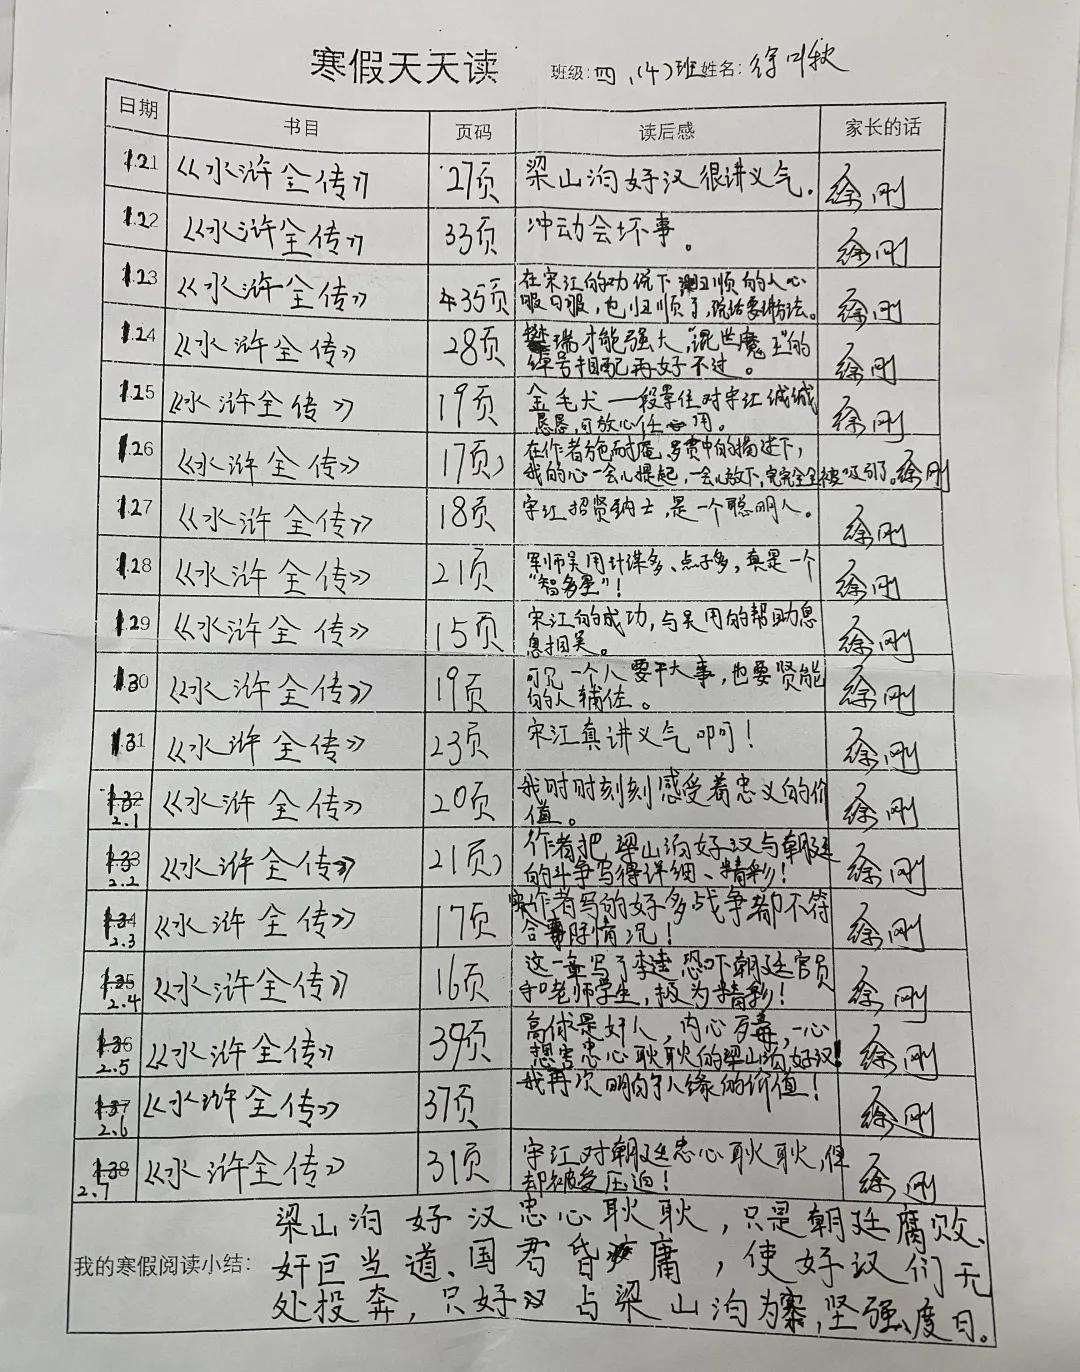 寒假天天读 班级:四、(4)班姓名:徐
日期 书目 页码 读后感 家长的话
1.21 《水浒全传》 27页 梁山泊好汉很讲义气。 徐刚
1.22 《水浒全传》 33页 冲动会坏事。 徐刚
1.23 《水浒全传》 35页 在宋江的劝说下归顺的人心
服口服,也归顺了,说话要讲方法。 徐刚
1.24 《水浒全传》 28页 樊瑞才能强大,"混世魔王"的
绰号相配再好不过。 徐刚
1.25 《水浒全传》 19页 金毛犬一段景住对宋江诚诚
恳恳,可放心任用。 徐刚
1.26 《水浒全传》 17页 在作者施耐庵、罗贯中的描述下,
我的心一会儿提起,一会儿放下,完完全全被吸引了。 徐刚
1.27 《水浒全传》 18页 宋江招贤纳士,是一个聪明人。 徐刚
1.28 《水浒全传》 21页 军师吴用计谋多、点子多,真是一个
"智多星"! 徐刚
1.29 《水浒全传》 15页 宋江的成功,与吴用的帮助息
息相关。 徐刚
1.30 《水浒全传》 19页 可见一个人要干大事,也要贤能
的人辅佐。 徐刚
1.31 《水浒全传》 23页 宋江真讲义气啊! 徐刚
1.32
2.1 《水浒全传》 20页 我时时刻刻感受着忠义的价
值。 徐刚
1.33
2.2 《水浒全传》 21页 作者把梁山泊好汉与朝廷
的斗争写得详细、精彩! 徐刚
1.34
2.3 《水浒全传》 17页 作者写的好多战争都不符
合实际情况! 徐刚
1.35
2.4 《水浒全传》 16页 这一章写了李逵恐吓朝廷官员
和老师学生,极为精彩! 徐刚
1.36
2.5 《水浒全传》 39页 高俅是奸人,内心歹毒,一心
想害忠心耿耿的梁山泊好汉! 徐刚
1.37
2.6 《水浒全传》 37页 我再次明白了人缘的价值! 徐刚
1.38
2.7 《水浒全传》 31页 宋江对朝廷忠心耿耿,但
却被受压迫! 徐刚
我的寒假阅读小结: 梁山泊好汉忠心耿耿,只是朝廷腐败、
奸巨当道、国君昏庸,使好汉们无
处投奔,只好汉占梁山泊为寨,坚强度日。